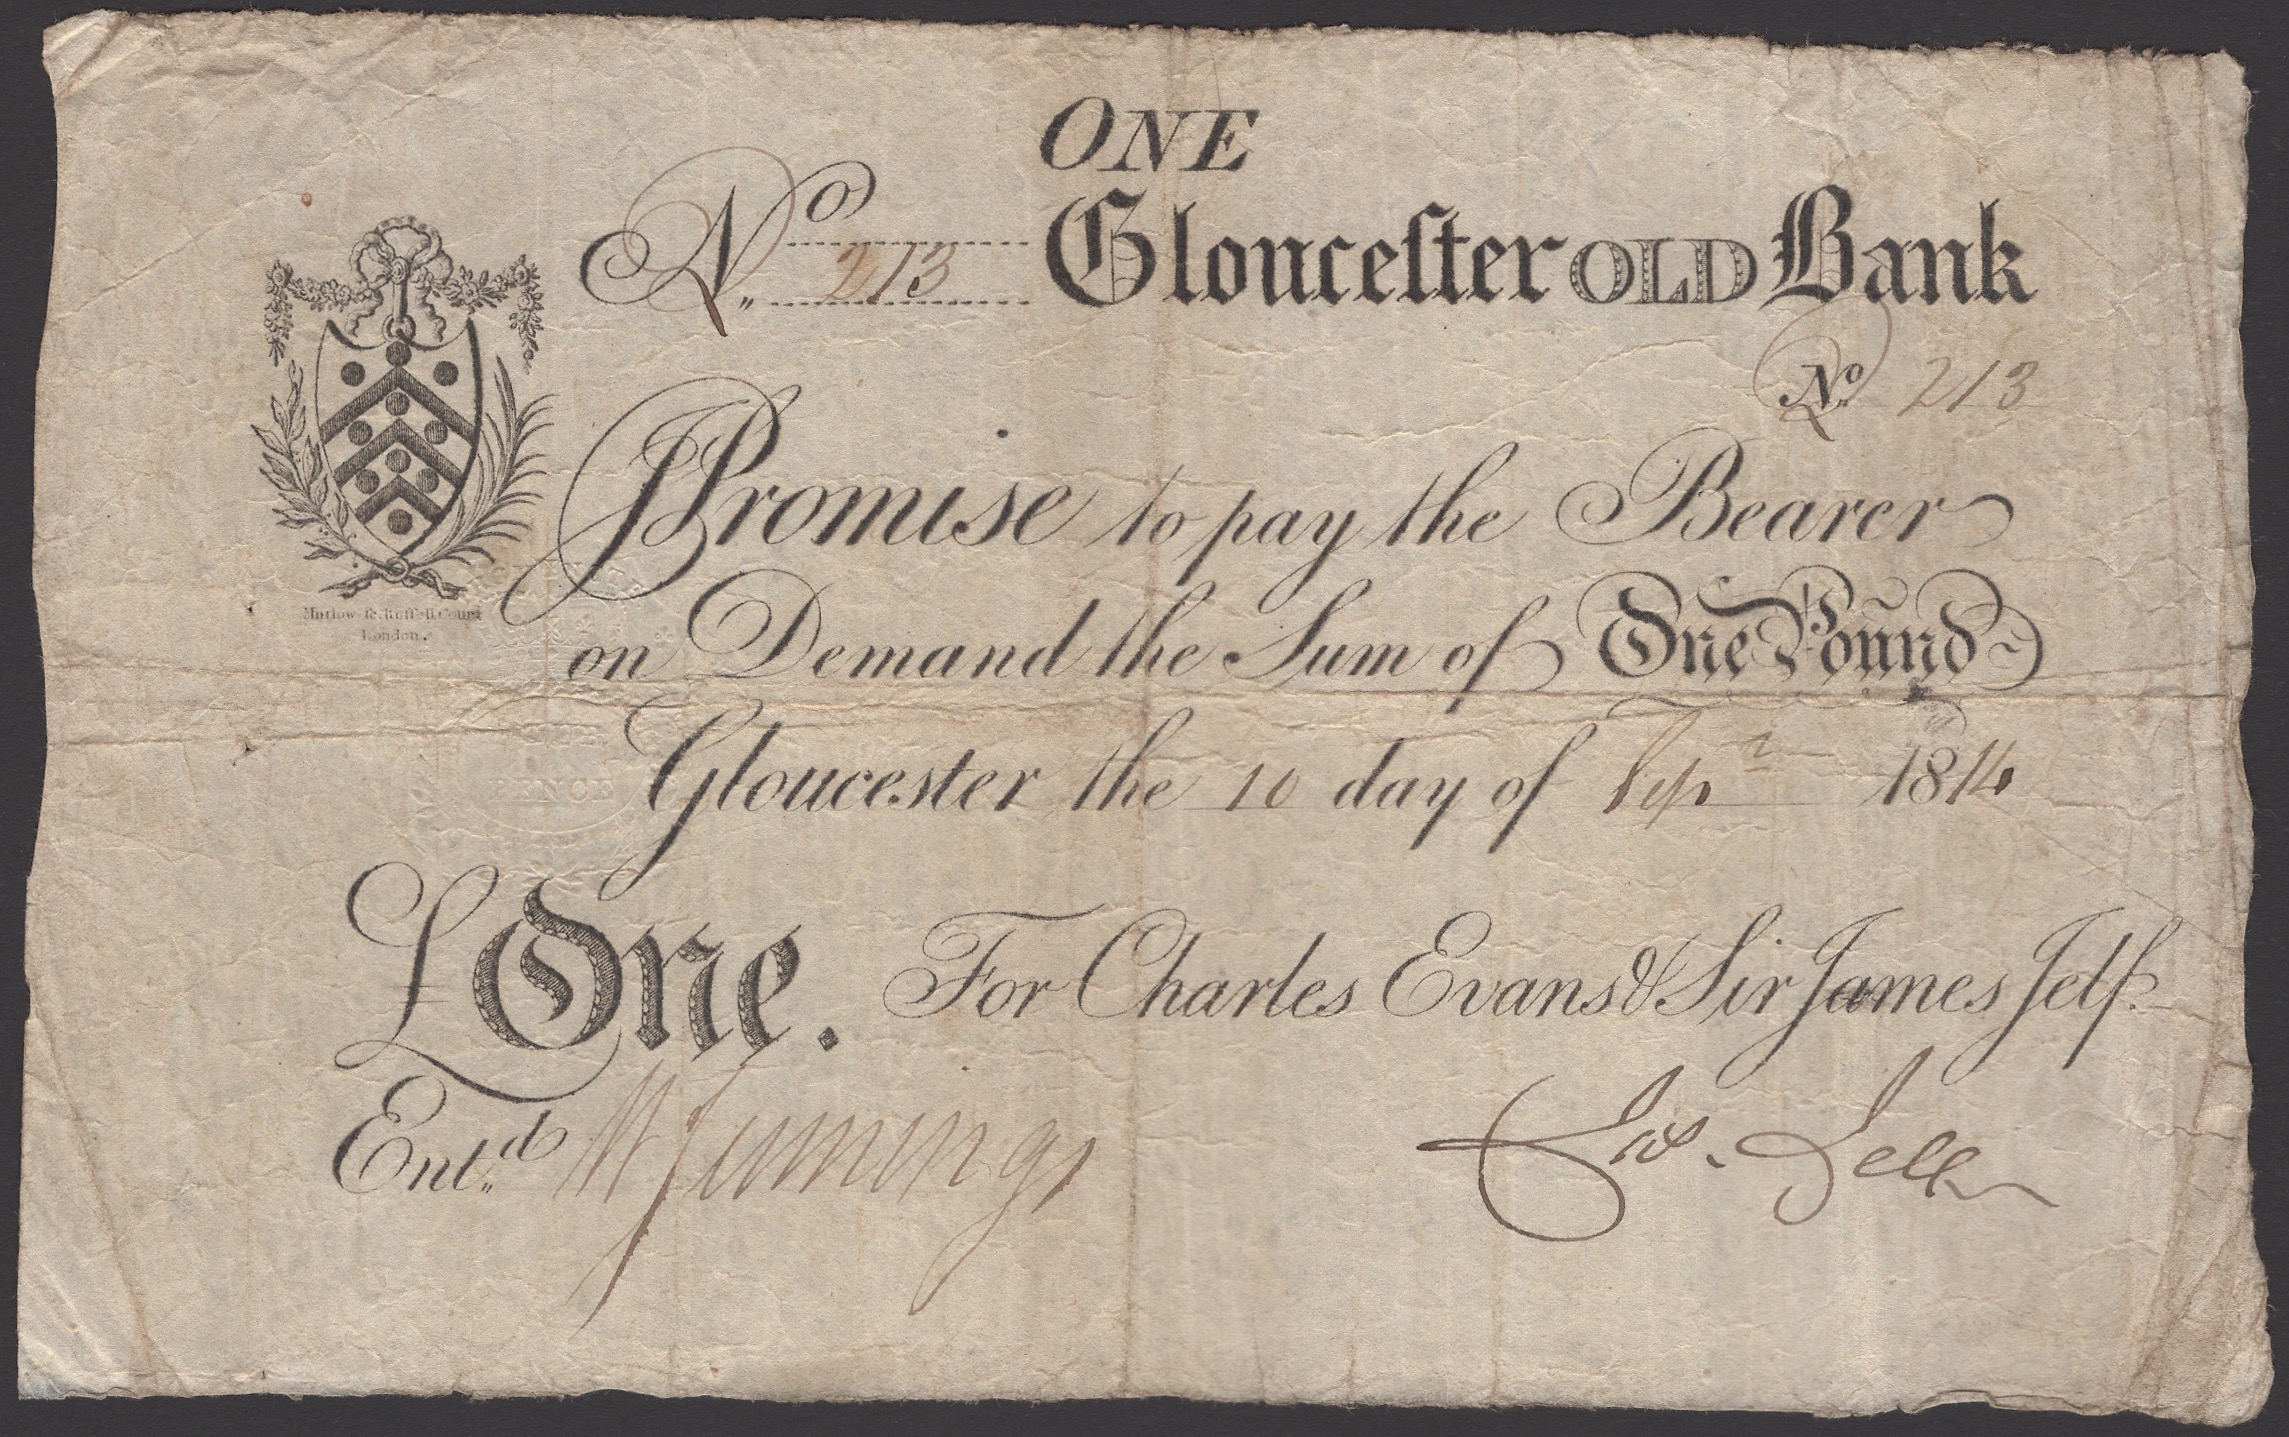 ONE
No. 213 Glouceſter OLD Bank
No. 213
I Promise to pay the Bearer
on Demand the Sum of One Pound
Gloucester the 10 day of Sepr 1814
£One. For Charles Evans & Sir James Jelf.
Mutlow sc. Ruſſell Court
London.
PENCE
Entd. W Jennings Jas. Jelf